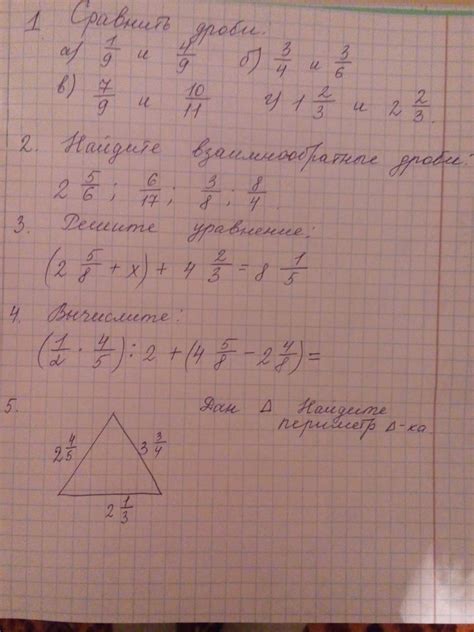 1 Сравнить дроби:
а) 1/9 и 4/9 б) 3/4 и 3/6
в) 7/9 и 10/11 г) 1 2/3 и 2 2/3.
2. Найдите взаимнообратные дроби:
2 5/6; 6/17; 3/8; 8/4.
3. Решите уравнение:
(2 5/8 + х) + 4 2/3 = 8 1/5
4. Вычислите:
(1/2 · 4/5) : 2 + (4 5/8 - 2 4/8) =
5. Дан Δ Найдите
периметр Δ-ка
2 4/5 3 3/4
2 1/3